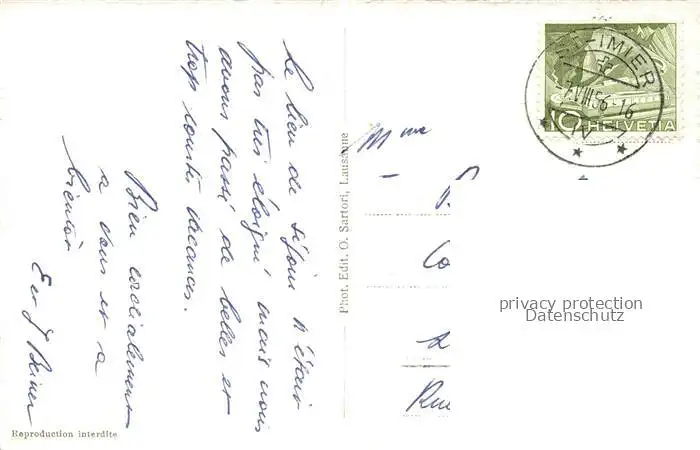 Le lieu de séjour n'était
pas très éloigné mais nous
avons passé de belles et
trop courtes vacances.
Bien cordialement
à vous et à
bientôt
E et J
Phot. Edit. O. Sartori, Lausanne
Reproduction interdite
ST-IMIER
7.VIII.56-16
10 HELVETIA
Mme
Co
Rue
privacy protection
Datenschutz